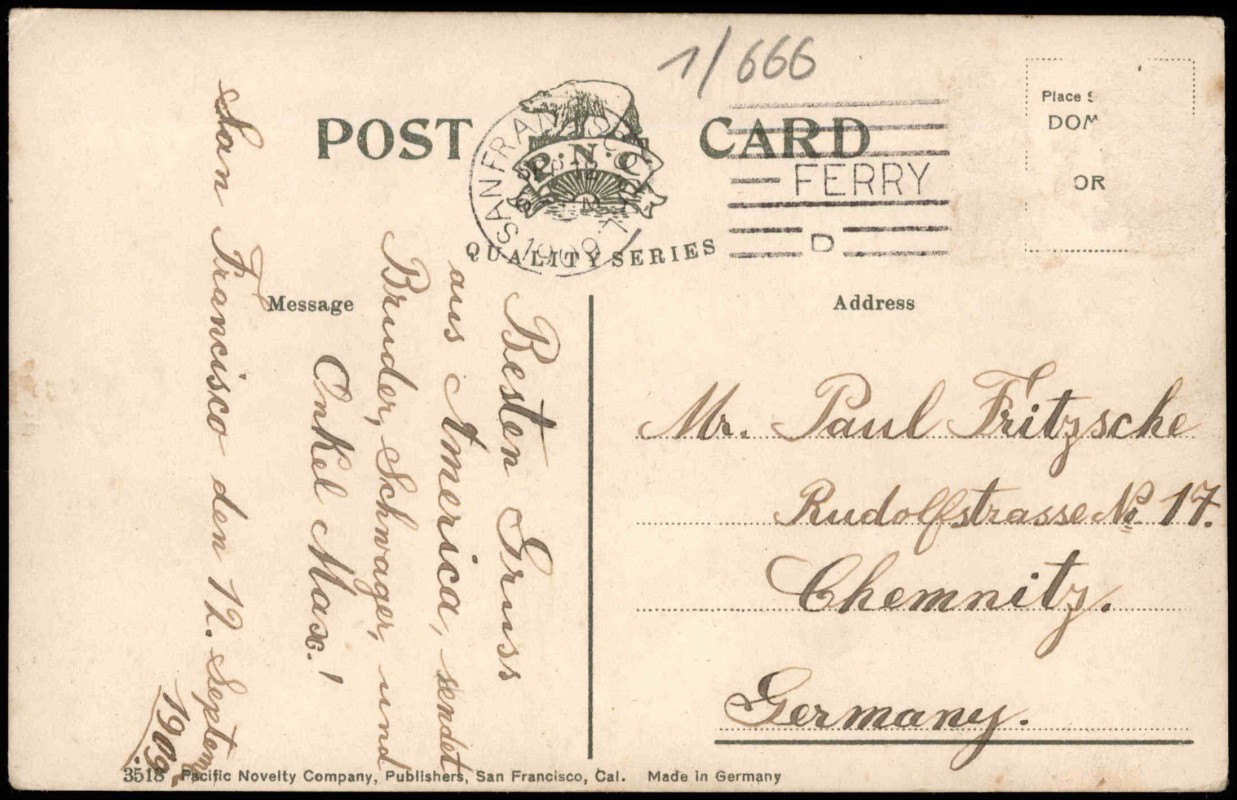 1/666
POST CARD
P. N. C
SAN FRANCISCO
1909
FERRY
D
QUALITY SERIES
Place
DOM
OR
Message
Address
Besten Gruss
aus America, sendet
Bruder, Schwager, und
Onkel Max.!
San Francisco den 12. Septem
1909.
Mr. Paul Fritzsche
Rudolfstrasse No 17.
Chemnitz.
Germany.
3518 Pacific Novelty Company, Publishers, San Francisco, Cal. Made in Germany